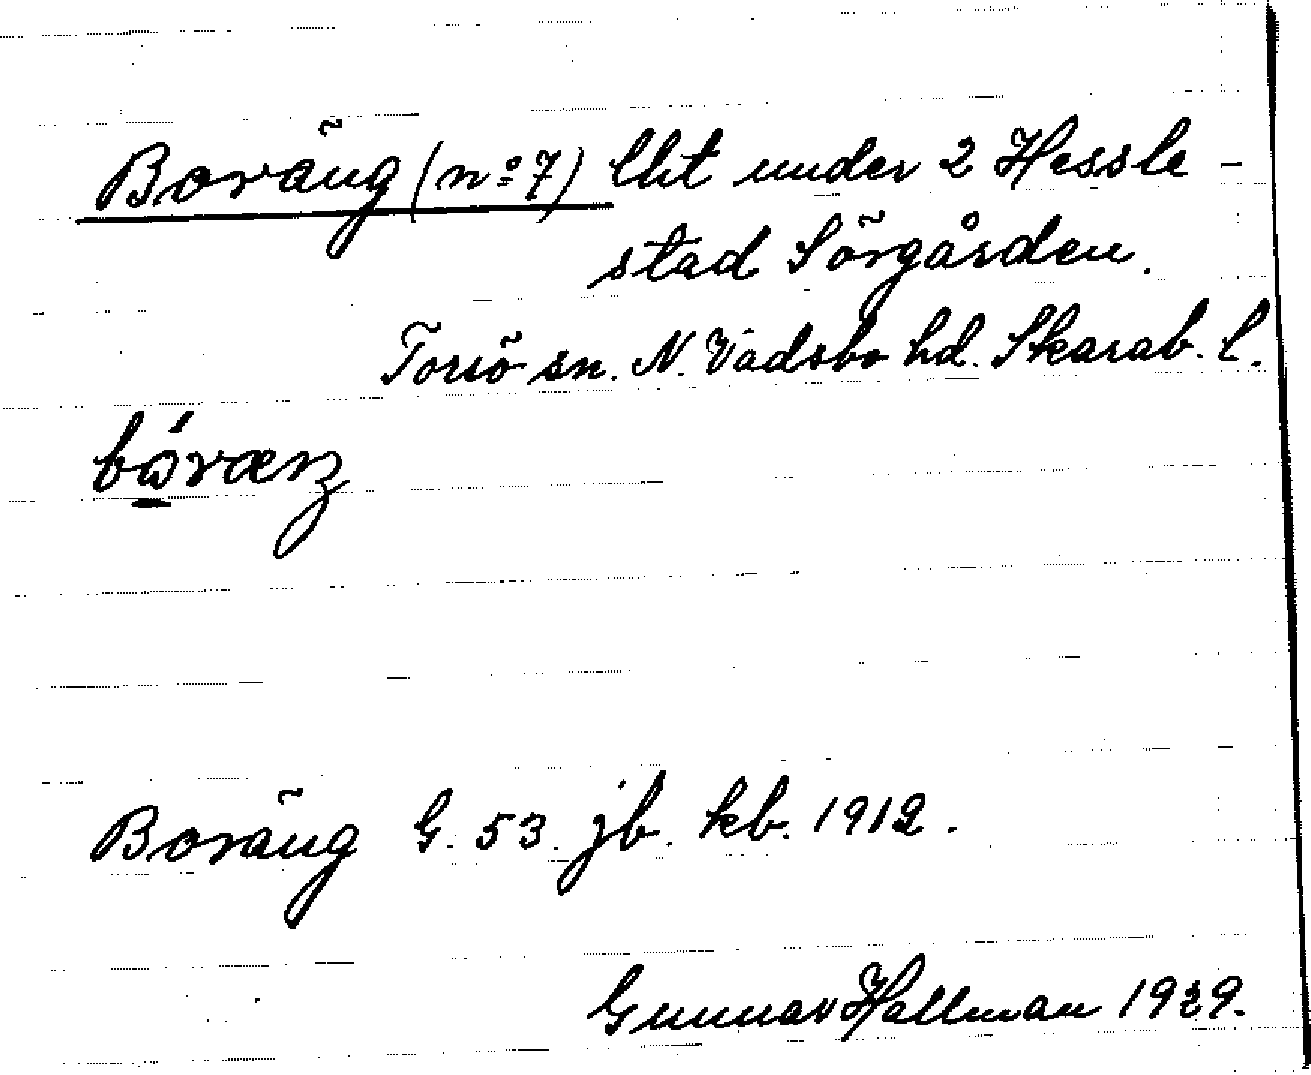 Boräng (nº 7) lht under 2 Hessle-
stad Sörgården.
Torsö sn. N. Vadsbo hd. Skarab. l.
Boräng G. 53 jb. kb. 1912.
Gunnar Hallman 1929.